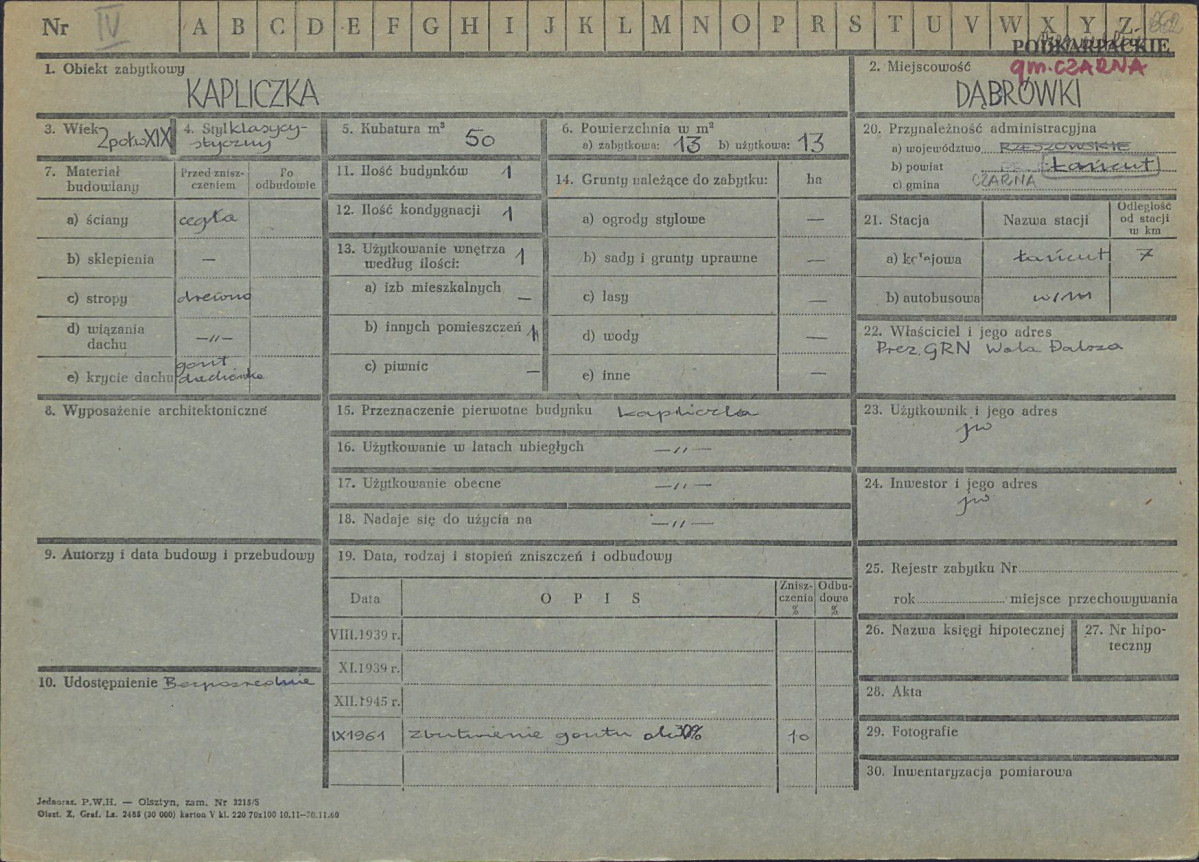 Nr IV A B C D E F G H I J K L M N O P R S T U V W X Y Z
PODKARPACKIE
gm. CZARNA
1. Obiekt zabytkowy
KAPLICZKA
2. Miejscowość
DĄBRÓWKI
3. Wiek 2 poł. w XIX
4. Styl klasycy-
styczny
5. Kubatura m³ 50
6. Powierzchnia w m²
a) zabytkowa: 13 b) użytkowa: 13
20. Przynależność administracyjna
a) województwo RZESZOWSKIE
b) powiat Łańcut
c) gmina CZARNA
7. Materiał
budowlany
Przed znisz-
czeniem
Po
odbudowie
a) ściany cegła
b) sklepienia —
c) stropy drewno
d) wiązania
dachu —"—
e) krycie dachu gont
dachówka
11. Ilość budynków 1
12. Ilość kondygnacji 1
13. Użytkowanie wnętrza
według ilości: 1
a) izb mieszkalnych —
b) innych pomieszczeń 1
c) piwnic —
14. Grunty należące do zabytku: ha
a) ogrody stylowe —
b) sady i grunty uprawne —
c) lasy —
d) wody —
e) inne —
21. Stacja
Nazwa stacji
Odległość
od stacji
w km
a) kolejowa Łańcut 7
b) autobusowa w/m
22. Właściciel i jego adres
Prez. GRN Wola Dalsza
8. Wyposażenie architektoniczne
15. Przeznaczenie pierwotne budynku kapliczka
16. Użytkowanie w latach ubiegłych —"—
17. Użytkowanie obecne —"—
18. Nadaje się do użycia na —"—
23. Użytkownik i jego adres
jw
24. Inwestor i jego adres
jw
9. Autorzy i data budowy i przebudowy
10. Udostępnienie Bezpośrednie
19. Data, rodzaj i stopień zniszczeń i odbudowy
Data
OPIS
Znisz-
czenia
%
Odbu-
dowa
%
VIII.1939 r.
XI.1939 r.
XII.1945 r.
IX 1961 zbutwienie gontu ok 30% 10
25. Rejestr zabytku Nr
rok miejsce przechowywania
26. Nazwa księgi hipotecznej
27. Nr hipo-
teczny
28. Akta
29. Fotografie
30. Inwentaryzacja pomiarowa
Jednoraz. P.W.H. — Olsztyn, zam. Nr 2215/S
Olszt. Z. Graf. Lz. 2488 (30 000) karton V kl. 220 70x100 10.11—70.11.60